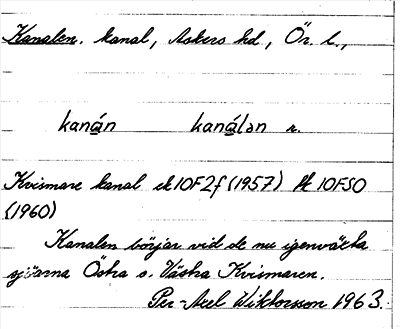 Kanalen. kanal, Askers hd, Ör. l.,
kanán kanálən n.
Kvismare kanal ek 10F2f (1957) tk 10FSO
(1960)
Kanalen börjar vid de nu igenväxta
sjöarna Östra o. Västra Kvismaren.
Per-Axel Wiktorsson 1963.